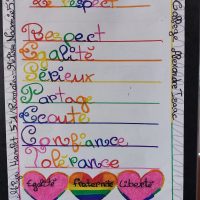 Le respect
Respect
Egalité
Sérieux
Partage
Ecoute
Confiance
Tolérance
Egalité fraternité Liberté
Collège Alexandre